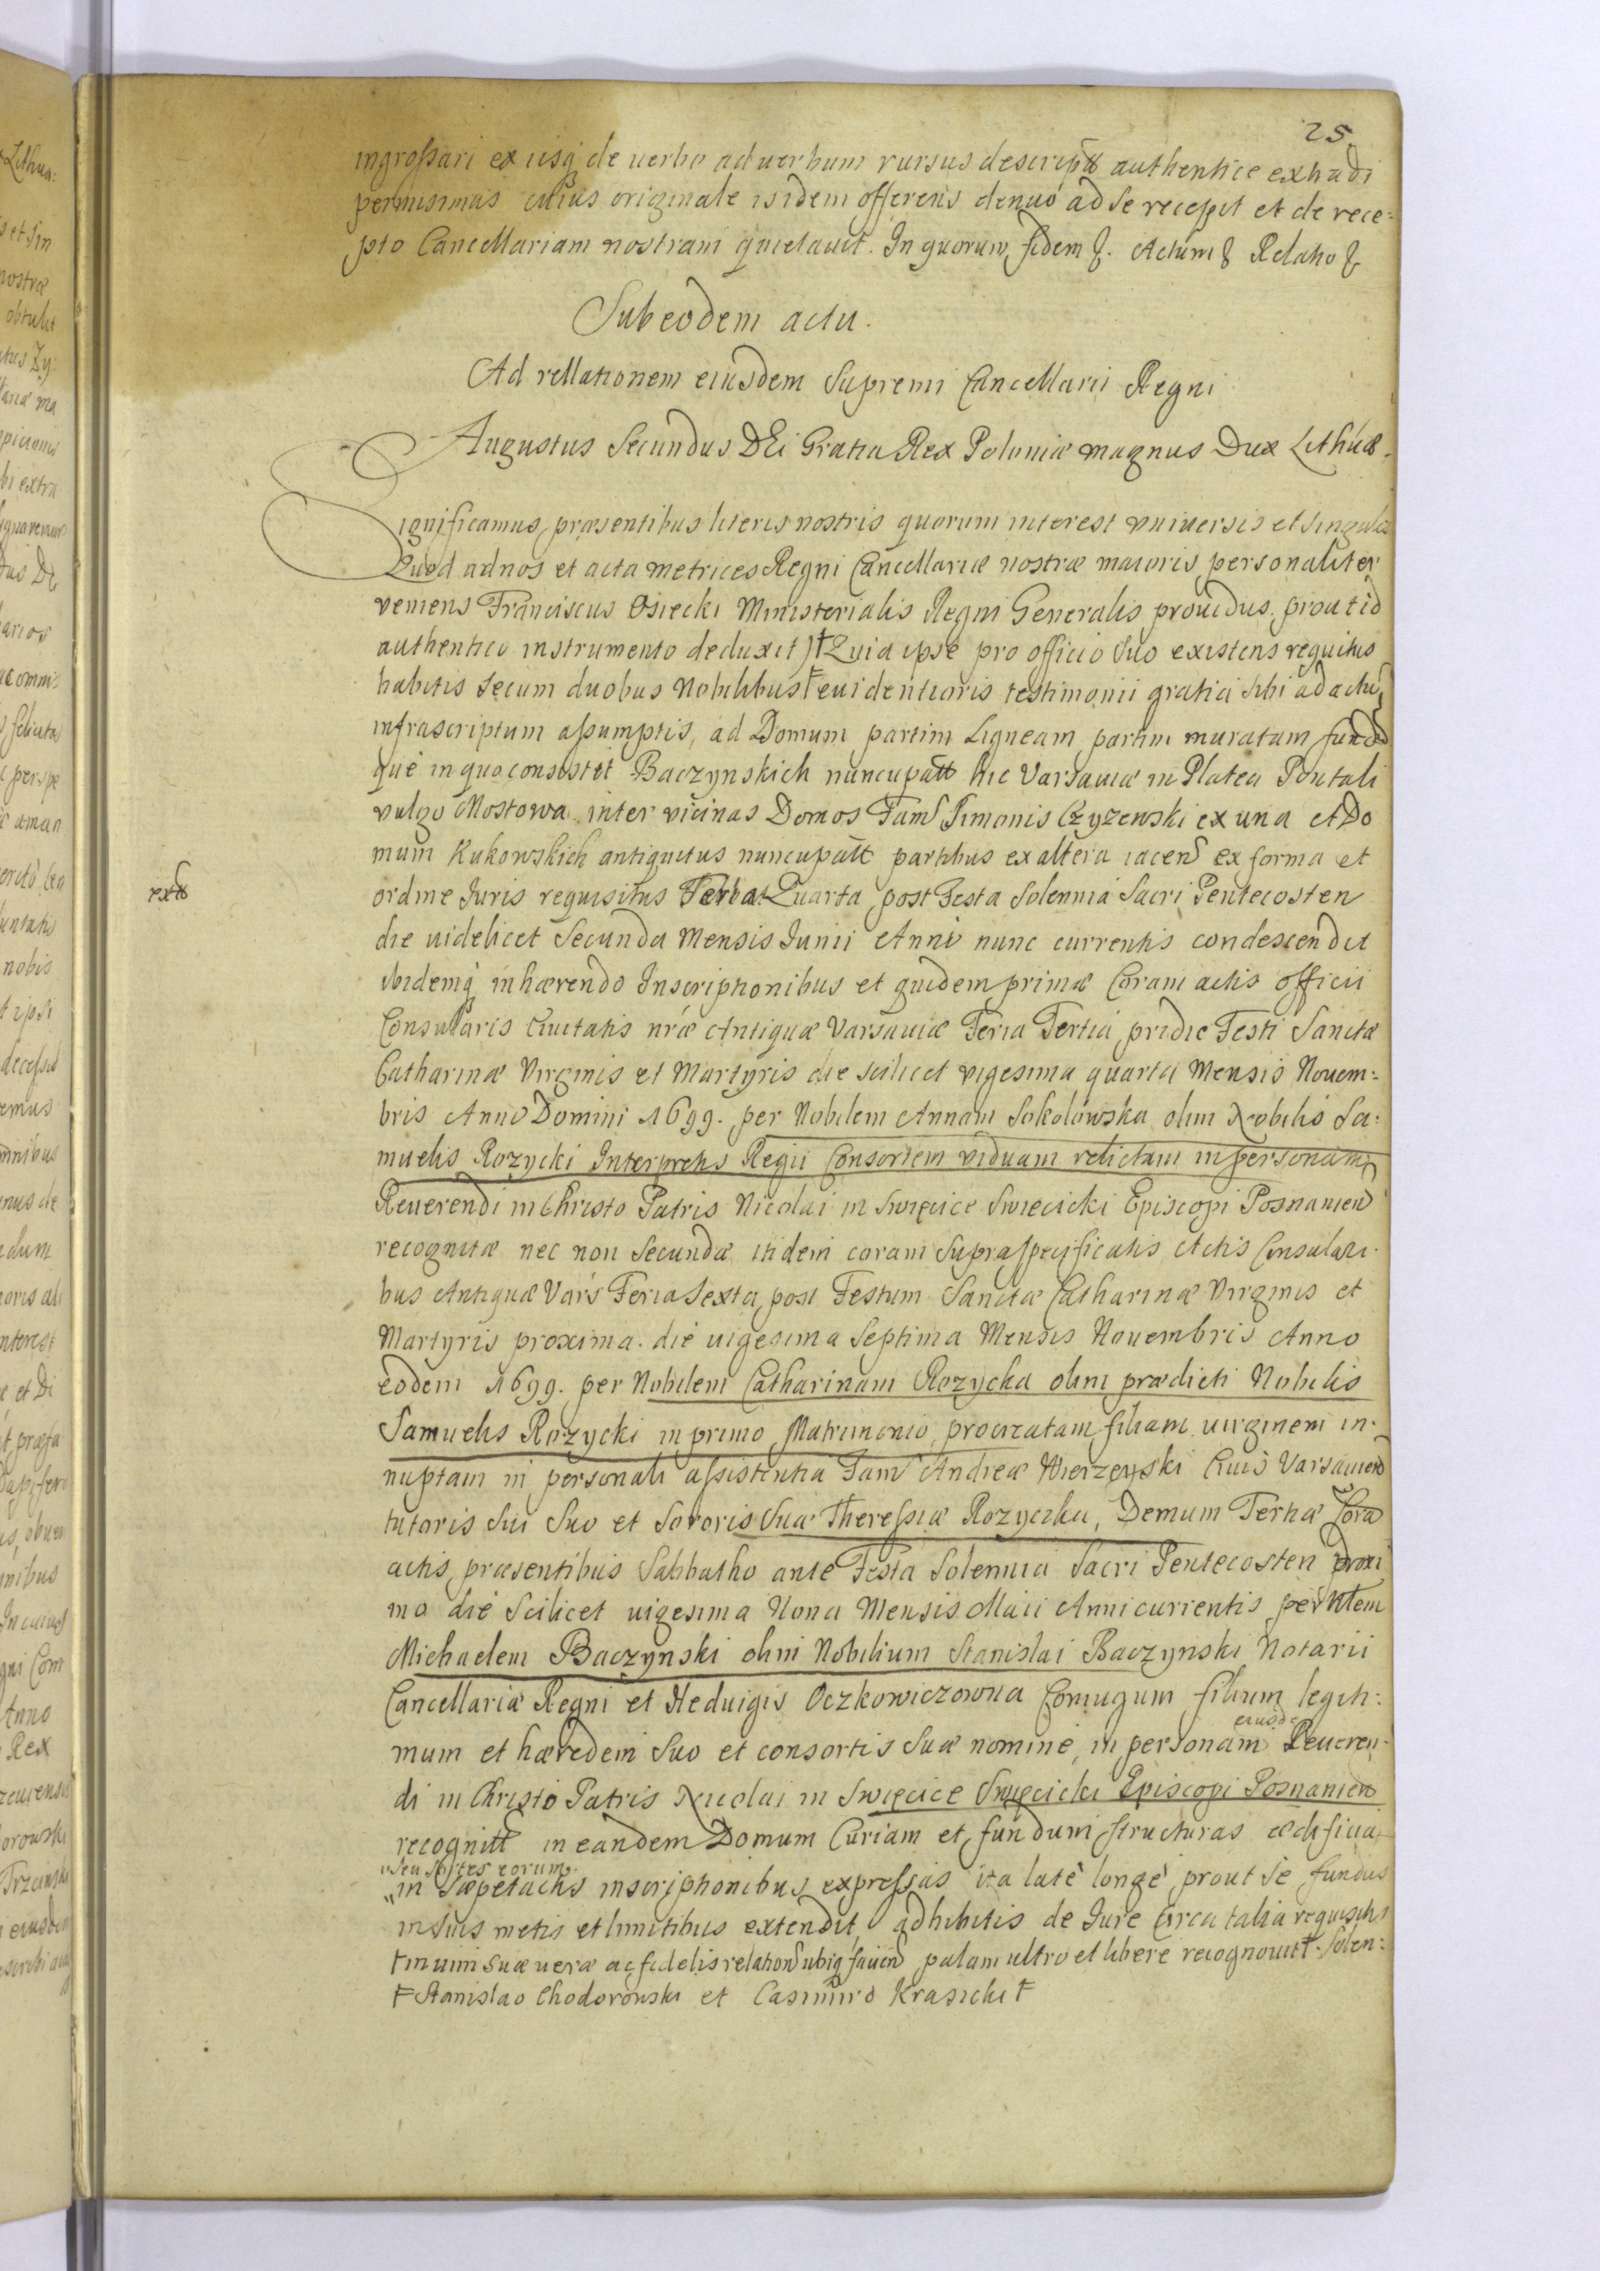 25
ingrossari ex iisq̃ de uerbo ad uerbum rursus descripta authentice extradi
permisimus cuius originale isidem offerens denuo ad se recepit et de rece=
pto Cancellariam nostram quietauit. In quorum fidem &. Actum & Relatio &
Sub eodem actu.
Ad rellationem eiusdem Supremi Cancellarii Regni
Augustus Secundus DEi Gratia Rex Poloniæ magnus Dux Lithuæ.
Significamus præsentibus literis nostris quorum interest vniuersis et singulis
Quod ad nos et acta metrices Regni Cancellariæ nostræ maioris personaliter
veniens Franciscus Osiecki Ministerialis Regni Generalis prouidus, prout id
authentico instrumento deduxit) Ŧ Quia ipse pro officio suo existens requisitus
habitis secum duobus Nobilibus Ŧ euidentioris testimonii gratia sibi ad actũ
infrascriptum assumptis, ad Domum partim Ligneam partim muratam fundũ
què in quo consistit Baczynskich nuncupatt hic Varsauiæ in Platea Pontali
vulgo Mostowa inter vicinas Domos Fam Simonis Czyzewski ex una et Do
mum Kukowskich antiquitus nuncupatt partibus ex altera iacen ex forma et
ordine Juris requisitus Feria Quarta post Festa Solennia Sacri Pentecosten
die uidelicet Secunda Mensis Junii Anni nunc currentis condescendit
ibidemq̃ inhærendo Inscriptionibus et quidem primæ Coram actis officii
Consularis Ciuitatis nræ Antiquæ Varsauiæ Feria Tertia pridie Festi Sanctæ
Catharinæ Virginis et Martyris die scilicet vigesima quarta Mensis Nouem=
bris Anno Domini 1699. per Nobilem Annam Sokolowska olim Nobilis Sa=
muelis Rozycki Interpretis Regii Consortem viduam relictam in personam
Reuerendi in Christo Patris Nicolai in Swięcice Swiecicki Episcopi Posnanien
recognitæ nec non Secundæ itidem coram supraspecificatis Actis Consulari=
bus Antiquæ Vars Feria Sexta post Festum Sanctæ Catharinæ Virginis et
Martyris proxima. die uigesima Septima Mensis Nouembris Anno
eodem 1699. per Nobilem Catharinam Rozycka olim prædicti Nobilis
Samuelis Rozycki in primo Matrimonio procreatam filiam uirginem in=
nuptam in personali assistentia Fam Andreæ Wierzeyski Ciuis Varsauien
tutoris sui suo et sororis suæ Theressiæ Rozycka, Demum Tertiæ Corã
actis præsentibus Sabbatho ante Festa Solennia Sacri Pentecosten proxi
mo die scilicet uigesima Nona Mensis Maii Anni currentis per Nłem
Michaelem Baczynski olim Nobilium Stanislai Baczynski Notarii
Cancellariæ Regni et Heduigis Oczkowiczowna Coniugum filium legiti=
mum et hæredem suo et consortis suæ nomine in personam eiusde Reueren=
di in Christo Patris Nicolai in Swięcice Swięcicki Episcopi Posnanien
recognitt in eandem Domum Curiam et fundum structuras ædificia
„seu sortes eorum„
„in sæpetactis inscriptionibus expressas ita latè longè prout se fundus
in suis metis et limitibus extendit, adhibitis de Jure circa talia requisitis
Ŧ in uim suæ ueræ ac fidelis relation ubiq̃ fauien palam ultro et libere recognouit Ŧ. Solen=
Ŧ Stanislao Chodorowski et Casimiro Krasicki Ŧ